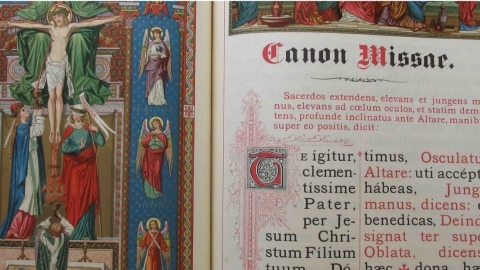 Canon Missae.
Sacerdos extendens, elevans et jungens m
nus, elevans ad cœlum oculos, et statim dem
tens, profunde inclinatus ante Altare, manib
super eo positis, dicit:
TE ígitur,
clemen-
tíssime
Pater,
per Je-
sum Chri-
stum Fílium
tuum Dó
timus, Osculatu
Altare: uti accépt
hábeas, Jung
manus, dicens: e
benedicas, Deind
signat ter supe
Oblata, dicens
hæc ✠ dona hæ